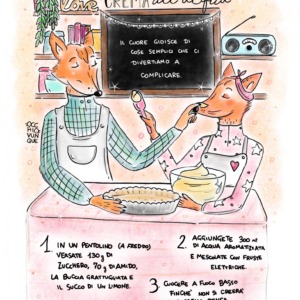 Love
CREMA all'acqua
IL CUORE GIOISCE DI
COSE SEMPLICI CHE CI
DIVERTIAMO A
COMPLICARE.
OCCHICHIVUNQUE
1 IN UN PENTOLINO (A FREDDO)
VERSATE 130 g DI
ZUCCHERO, 70 g DI AMIDO,
LA BUCCIA GRATTUGIATA E
IL SUCCO DI UN LIMONE.
2 AGGIUNGETE 300 ml
DI ACQUA AROMATIZZATA
E MESCOLATE CON FRUSTE
ELETTRICHE.
3 CUOCERE A FUOCO BASSO
FINCHÈ NON SI CREERÀ